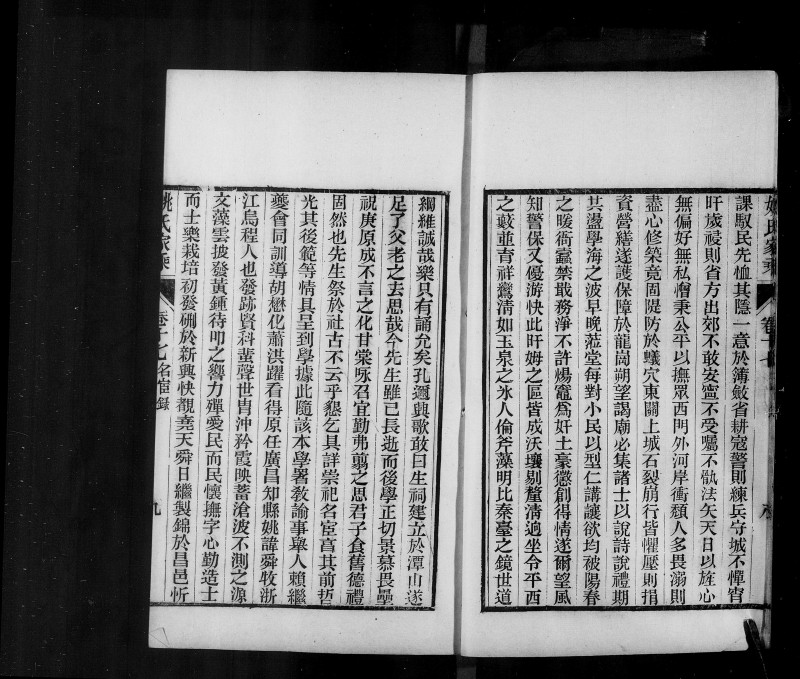 姚氏家乘 卷十七
課馭民先恤其隱一意於簿斂省耕寇警則練兵守城不憚宵
旰歲祲則省方出郊不敢安寧不受囑不骫法矢天日以旌心
無偏好無私憎秉公平以撫眾西門外河岸衝頹人多畏溺則
盡心修築竟固隄防於蟻穴東關上城石裂崩行皆懼壓則捐
資營繕遂護保障於龍岡朔望謁廟必集諸士以說詩說禮期
其盪學海之波早晚蒞堂每對小民以型仁講讓欲均被陽春
之暖衙蠹禁戢務淨不許煬竈為奸土豪懲創得情遂爾望風
知警保又優游快此旰姆之區皆成沃壤剔釐清逈坐令平西
之藪重育祥鸞淸如玉泉之氷人倫斧藻明比秦臺之鏡世道
綱維誠哉樂只有誦允矣孔邇興歌敢曰生祠建立於潭山遂
足了父老之去思哉今先生雖已長逝而後學正切景慕畏壘
祝庚原成不言之化甘棠咏召宜勤弗翦之思君子食舊德禮
固然也先生祭於社古不云乎懇乞具詳崇祀名宦高其前哲
光其後範等情具呈到學據此隨該本學署教諭事舉人賴繼
夔會同訓導胡懋化蕭洪躍看得原任廣昌知縣姚諱舜牧浙
江烏程人也發跡賢科蜚聲世冑沖矜霞映蓄滄波不測之源
文藻雲披發黃鍾待叩之響力殫愛民而民懷撫字心勤造士
而士樂栽培初發硎於新興快覩堯天舜日繼製錦於昌邑忻
姚氏家乘 卷十七 名宦錄 九